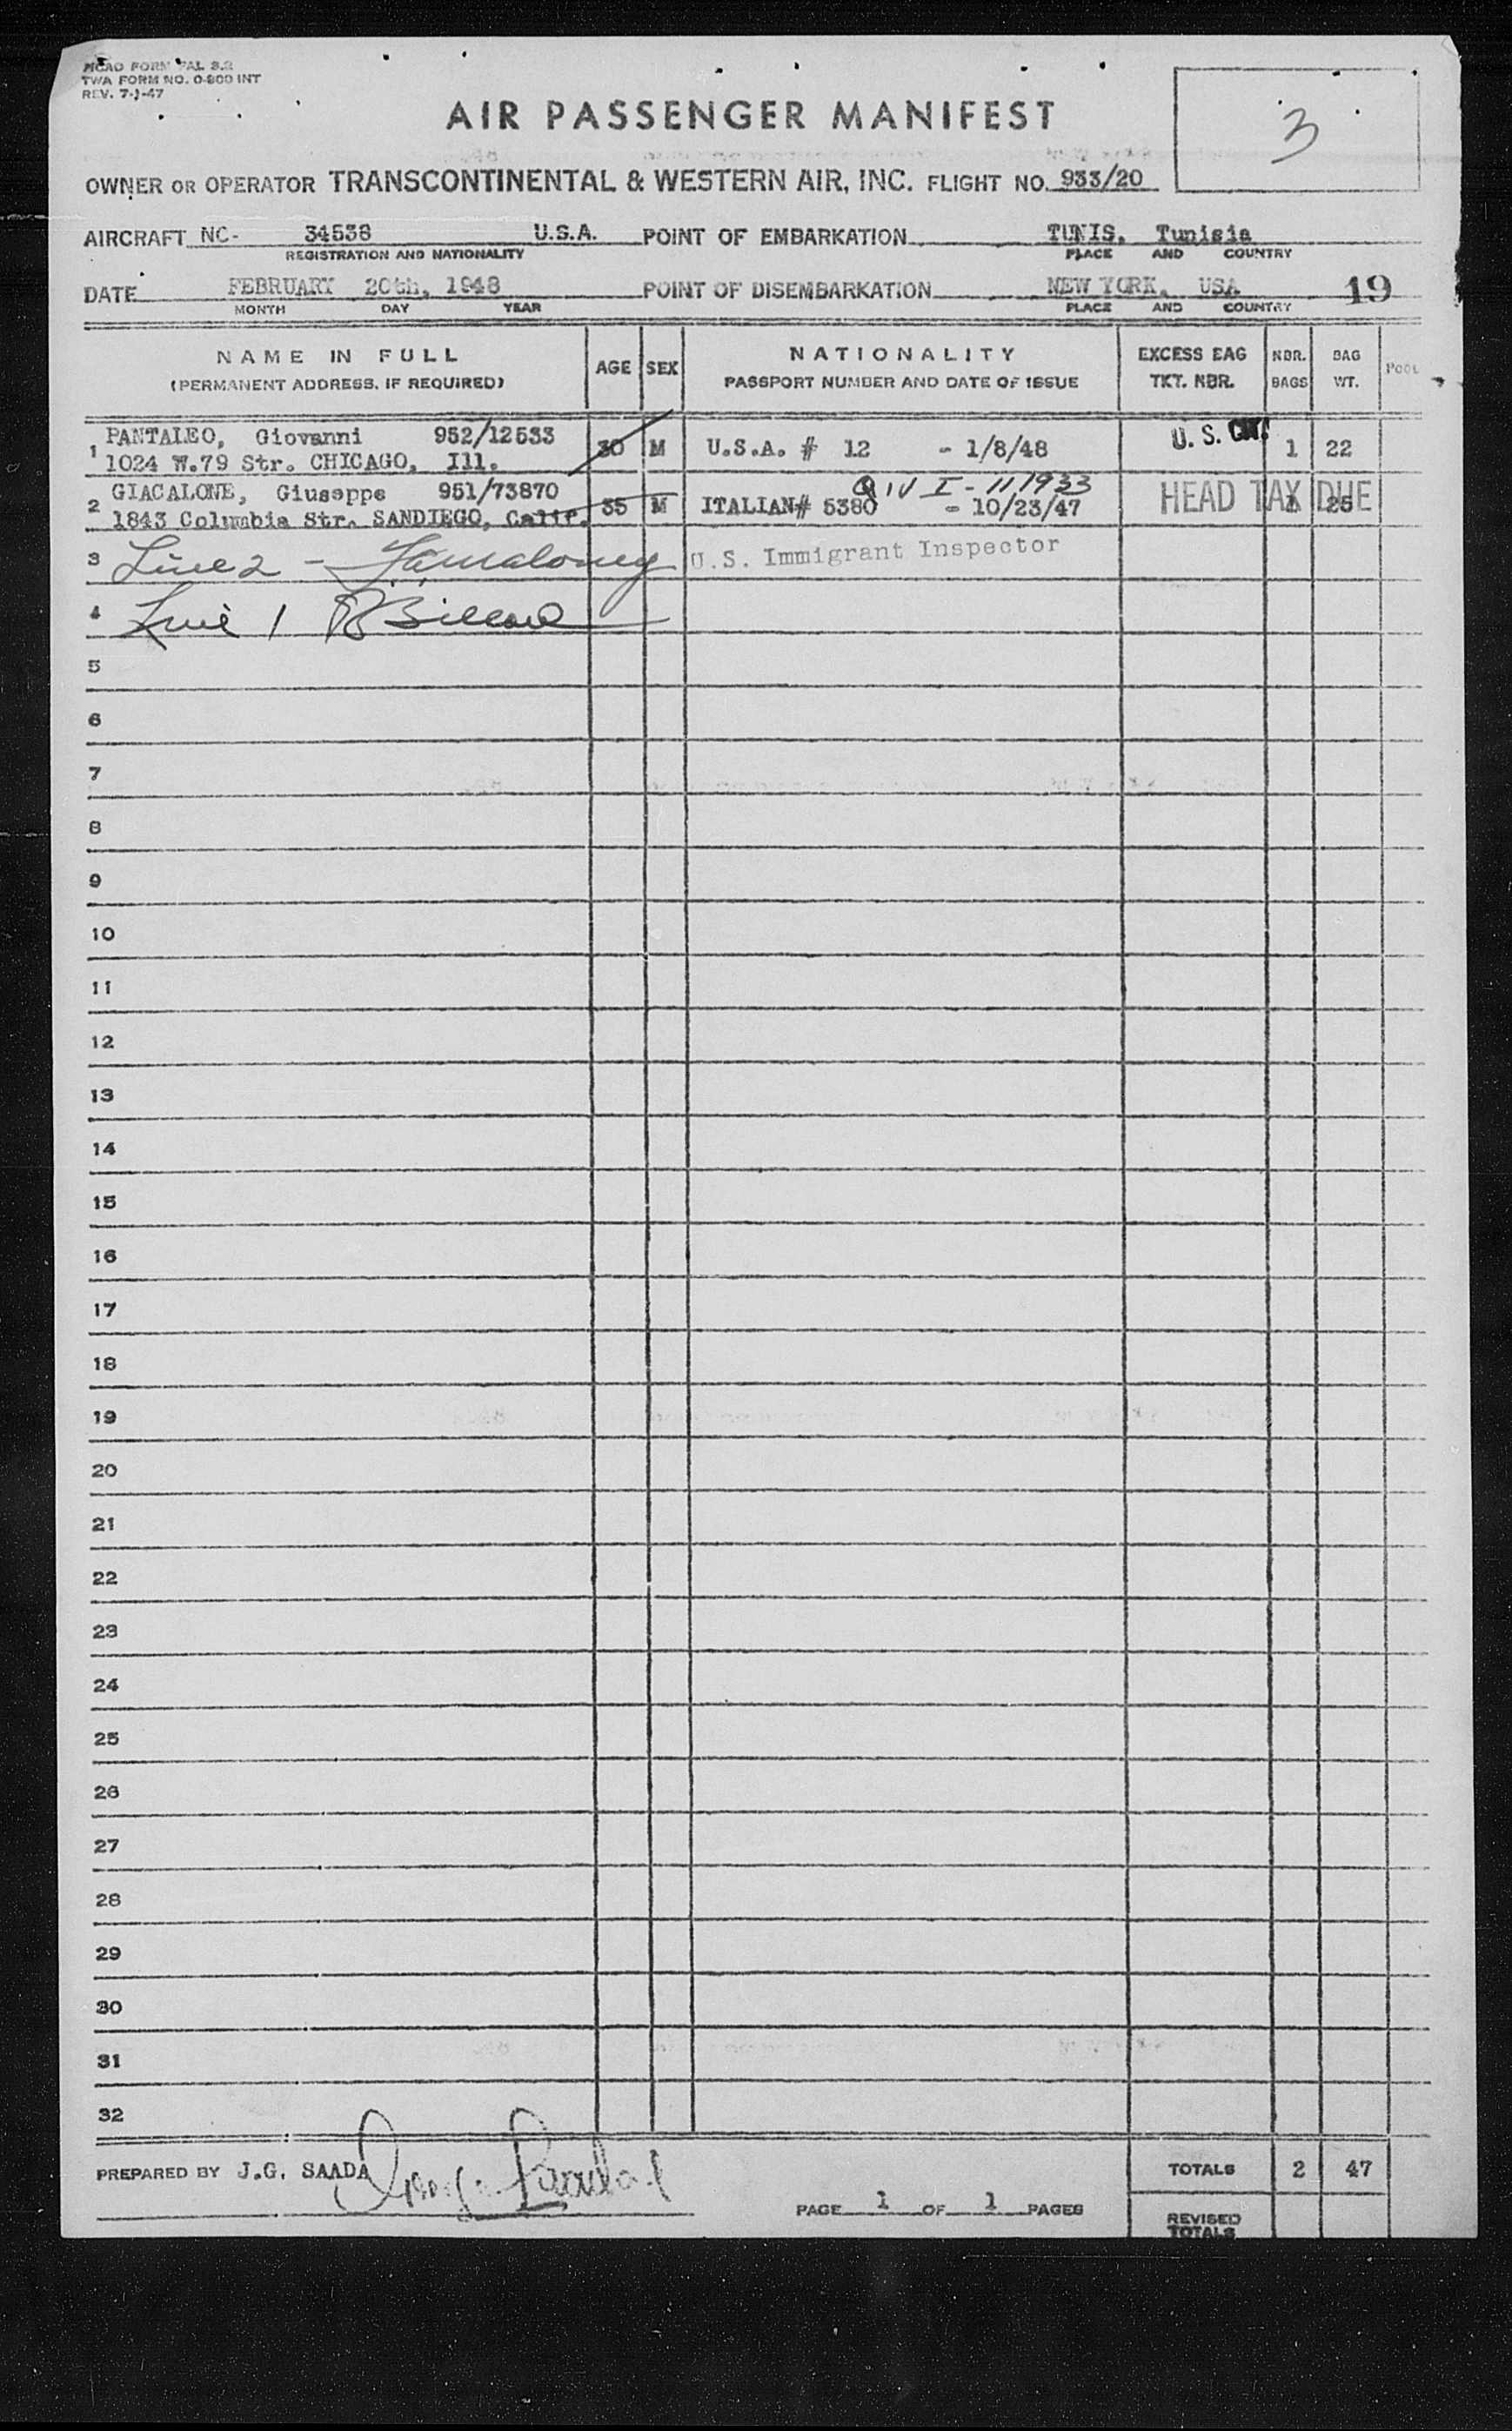 TWA FORM NO. 0-800 INT
REV. 7-1-47
AIR PASSENGER MANIFEST
3
OWNER OR OPERATOR TRANSCONTINENTAL & WESTERN AIR, INC. FLIGHT NO. 933/20
AIRCRAFT NC- 34538 U.S.A. POINT OF EMBARKATION TUNIS, Tunisia
REGISTRATION AND NATIONALITY PLACE AND COUNTRY
DATE FEBRUARY 20th, 1948 POINT OF DISEMBARKATION NEW YORK, USA 19
MONTH DAY YEAR PLACE AND COUNTRY
NAME IN FULL AGE SEX NATIONALITY EXCESS BAG NBR. BAG
(PERMANENT ADDRESS, IF REQUIRED) PASSPORT NUMBER AND DATE OF ISSUE TKT. NBR. BAGS WT.
1 PANTALEO, Giovanni 952/12533 30 M U.S.A. # 12 - 1/8/48 U.S. CIT. 1 22
1024 W.79 Str. CHICAGO, Ill.
2 GIACALONE, Giuseppe 951/73870 QIV I-111933 HEAD TAX DUE
1843 Columbia Str. SANDIEGO, Calif. 35 M ITALIAN# 5380 - 10/23/47 1 25
3 Line 2 - U.S. Immigrant Inspector
4 Line 1
5
6
7
8
9
10
11
12
13
14
15
16
17
18
19
20
21
22
23
24
25
26
27
28
29
30
31
32
PREPARED BY J.G. SAADA TOTALS 2 47
PAGE 1 OF 1 PAGES REVISED
TOTALS